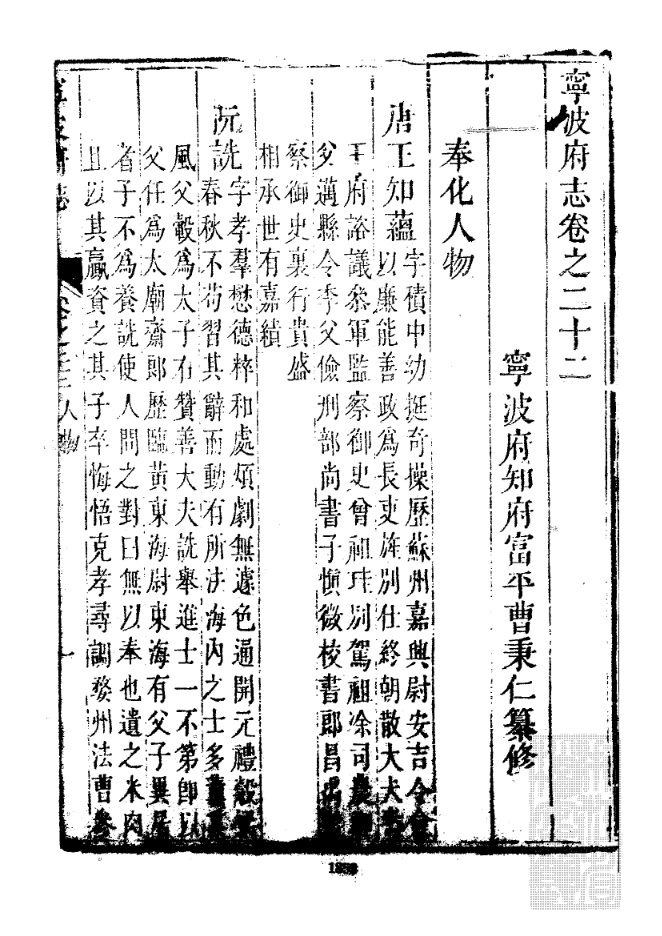 寧波府志卷之二十二
寧波府知府富平曹秉仁纂修
奉化人物
唐王知蘊字積中幼挺奇操歷蘇州嘉興尉安吉令會
以廉能善政爲長吏旌別仕終朝散大夫
王府諮議叅軍監察御史曾祖珪別駕祖凃司農
父邁縣令季父儉刑部尚書子愼微校書郎昌
察御史裏行貴盛
相承世有嘉績
阮詵字孝羣懋德粹和處煩劇無遽色通開元禮
春秋不苟習其辭而動有所法海內之士多
風父㲄爲太子右贊善大夫詵舉進士一不第即以
父任爲太廟齋郎歷臨黃東海尉東海有父子異居
者子不爲養詵使人問之對曰無以奉也遺之米肉
且以其贏資之其子卒悔悟克孝尋調婺州法曹叅
寧波府志
人物
一